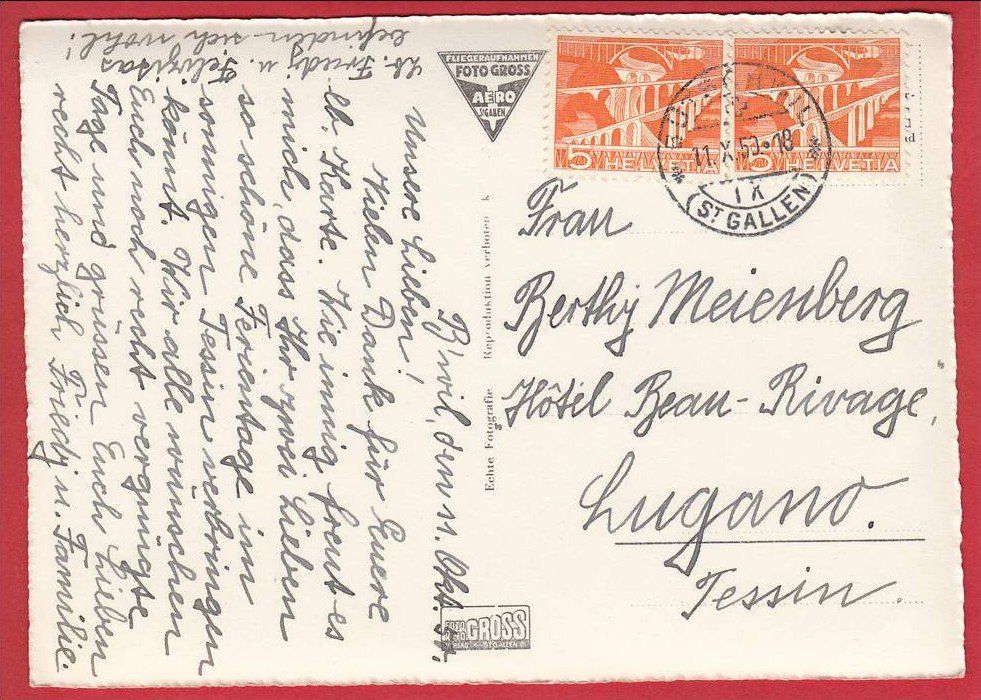 B'wil, den 11. Okt. 50.
Unsere Lieben!
Vielen Dank für Euere
lb. Karte. Wie innig freut es
mich, dass Ihr zwei Lieben
so schöne Ferientage im
sonnigen Tessin verbringen
könnt. Wir alle wünschen
Euch noch recht vergnügte
Tage und grüssen Euch Lieben
recht herzlich Friedj u. Familie.
Lb. Friedj u.
befinden sich wohl!
FLIEGERAUFNAHMEN
FOTO GROSS
AERO
ST.GALLEN
Echte Fotografie Reproduktion verboten k
FOTO
GROSS
ST.GALLEN
5 HELVETIA
5 HELVETIA
11.X.50-18
(ST. GALLEN)
Frau
Berthy Meienberg
Hôtel Beau-Rivage
Lugano.
Tessin.